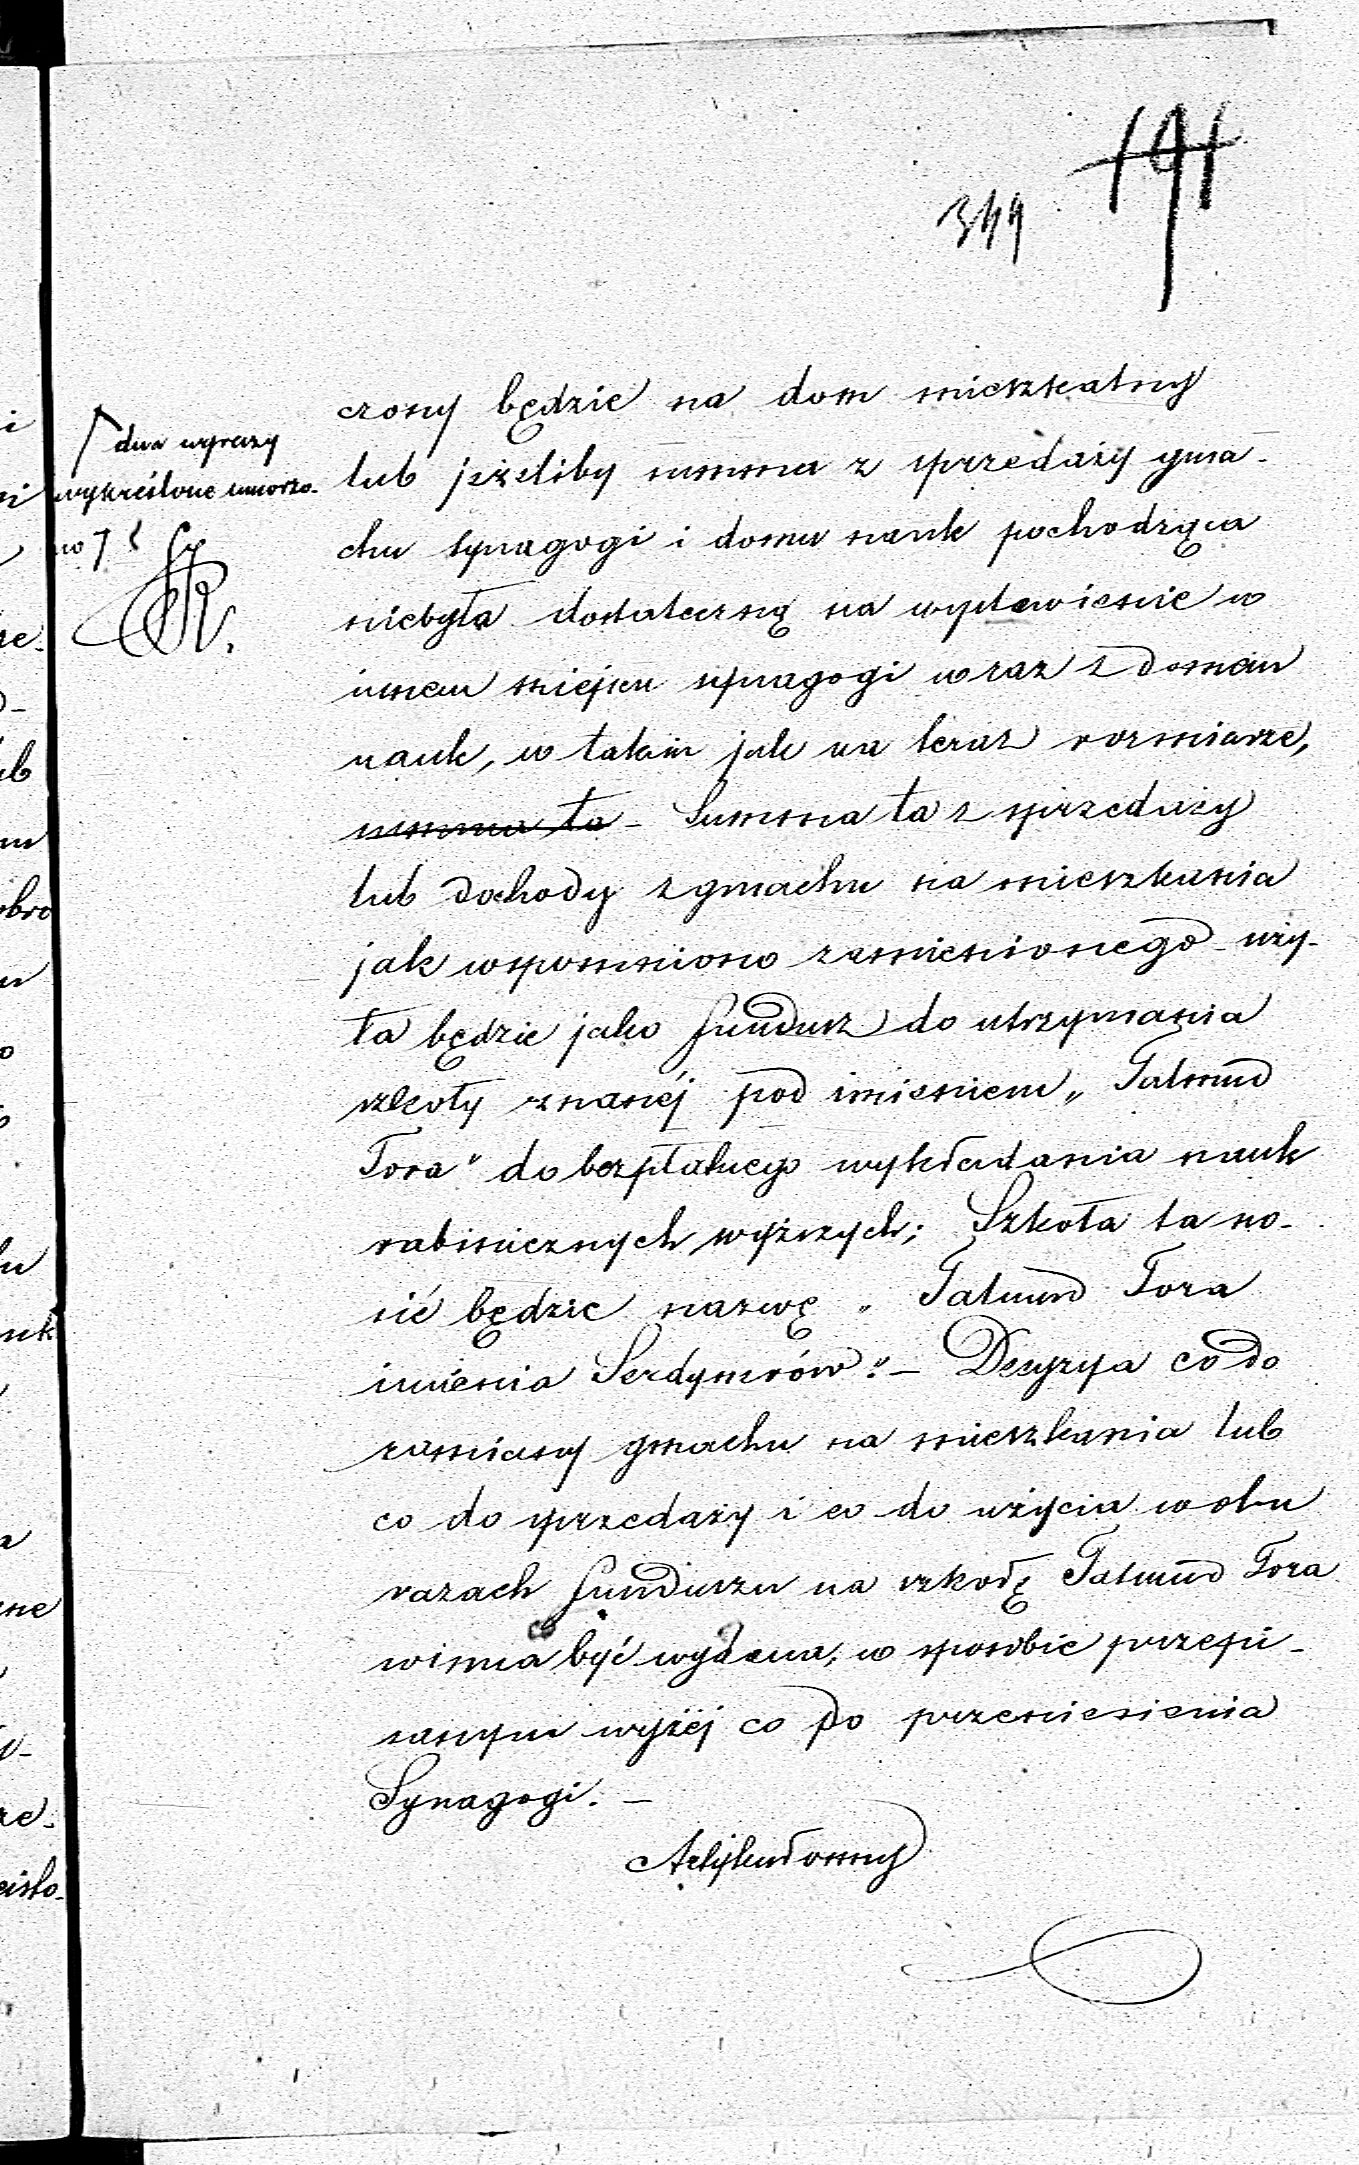 191
349
dwa wyrazy
wykreślone umorzo-
no
czony będzie na dom mieszkalny
lub jeżeliby summa z sprzedaży gma-
chu synagogi i domu nauk pochodząca
niebyła dostateczną na wystawienie w
innem miejscu synagogi wraz z domem
nauk, w takim jak na teraz rozmiarze,
summa ta - Summa ta z sprzedaży
lub dochody z gmachu na mieszkania
jak wspomniono zamienionego uży-
ta będzie jako fundusz do utrzymania
szkoły znanéj pod imieniem „Talmud
Tora" do bezpłatnego wykładania nauk
rabinicznych wyższych; Szkoła ta no-
sić będzie nazwę „Talmud Tora
imienia Serdynerów". - Decyzya co do
zamiany gmachu na mieszkania lub
co do sprzedaży i co do użycia w obu
razach funduszu na szkołę Talmud Tora
winna być wydana, w sposobie przepi-
sanym wyżéj co do przeniesienia
Synagogi. -
Artykuł ósmy